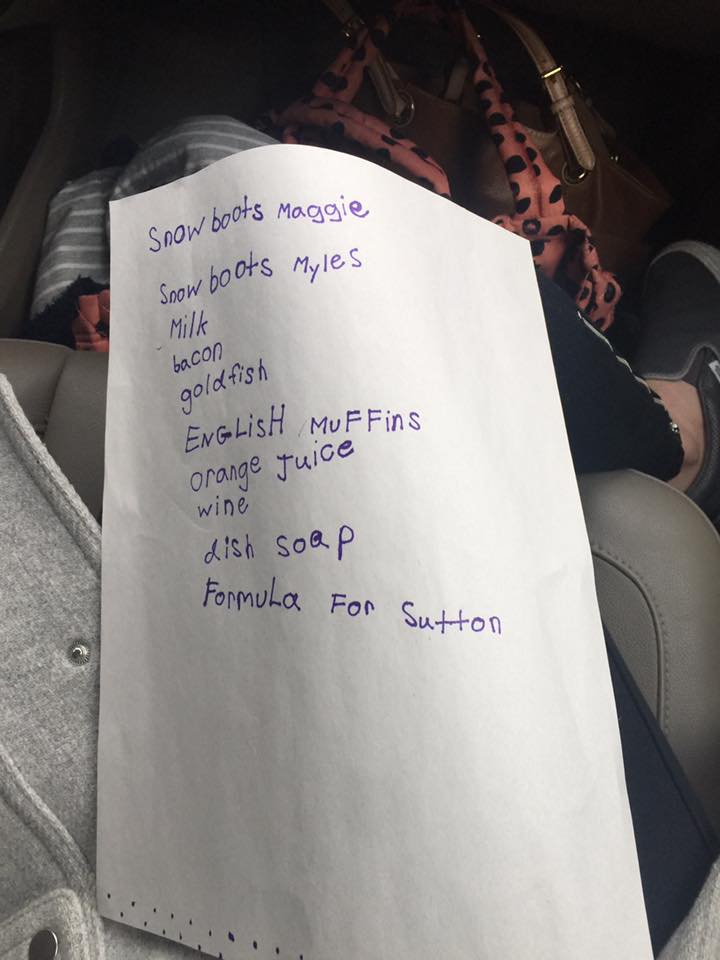 Snow boots Maggie
Snow boots Myles
Milk
bacon
goldfish
ENGLISH MuFFins
orange Juice
wine
dish soap
FormuLa For Sutton